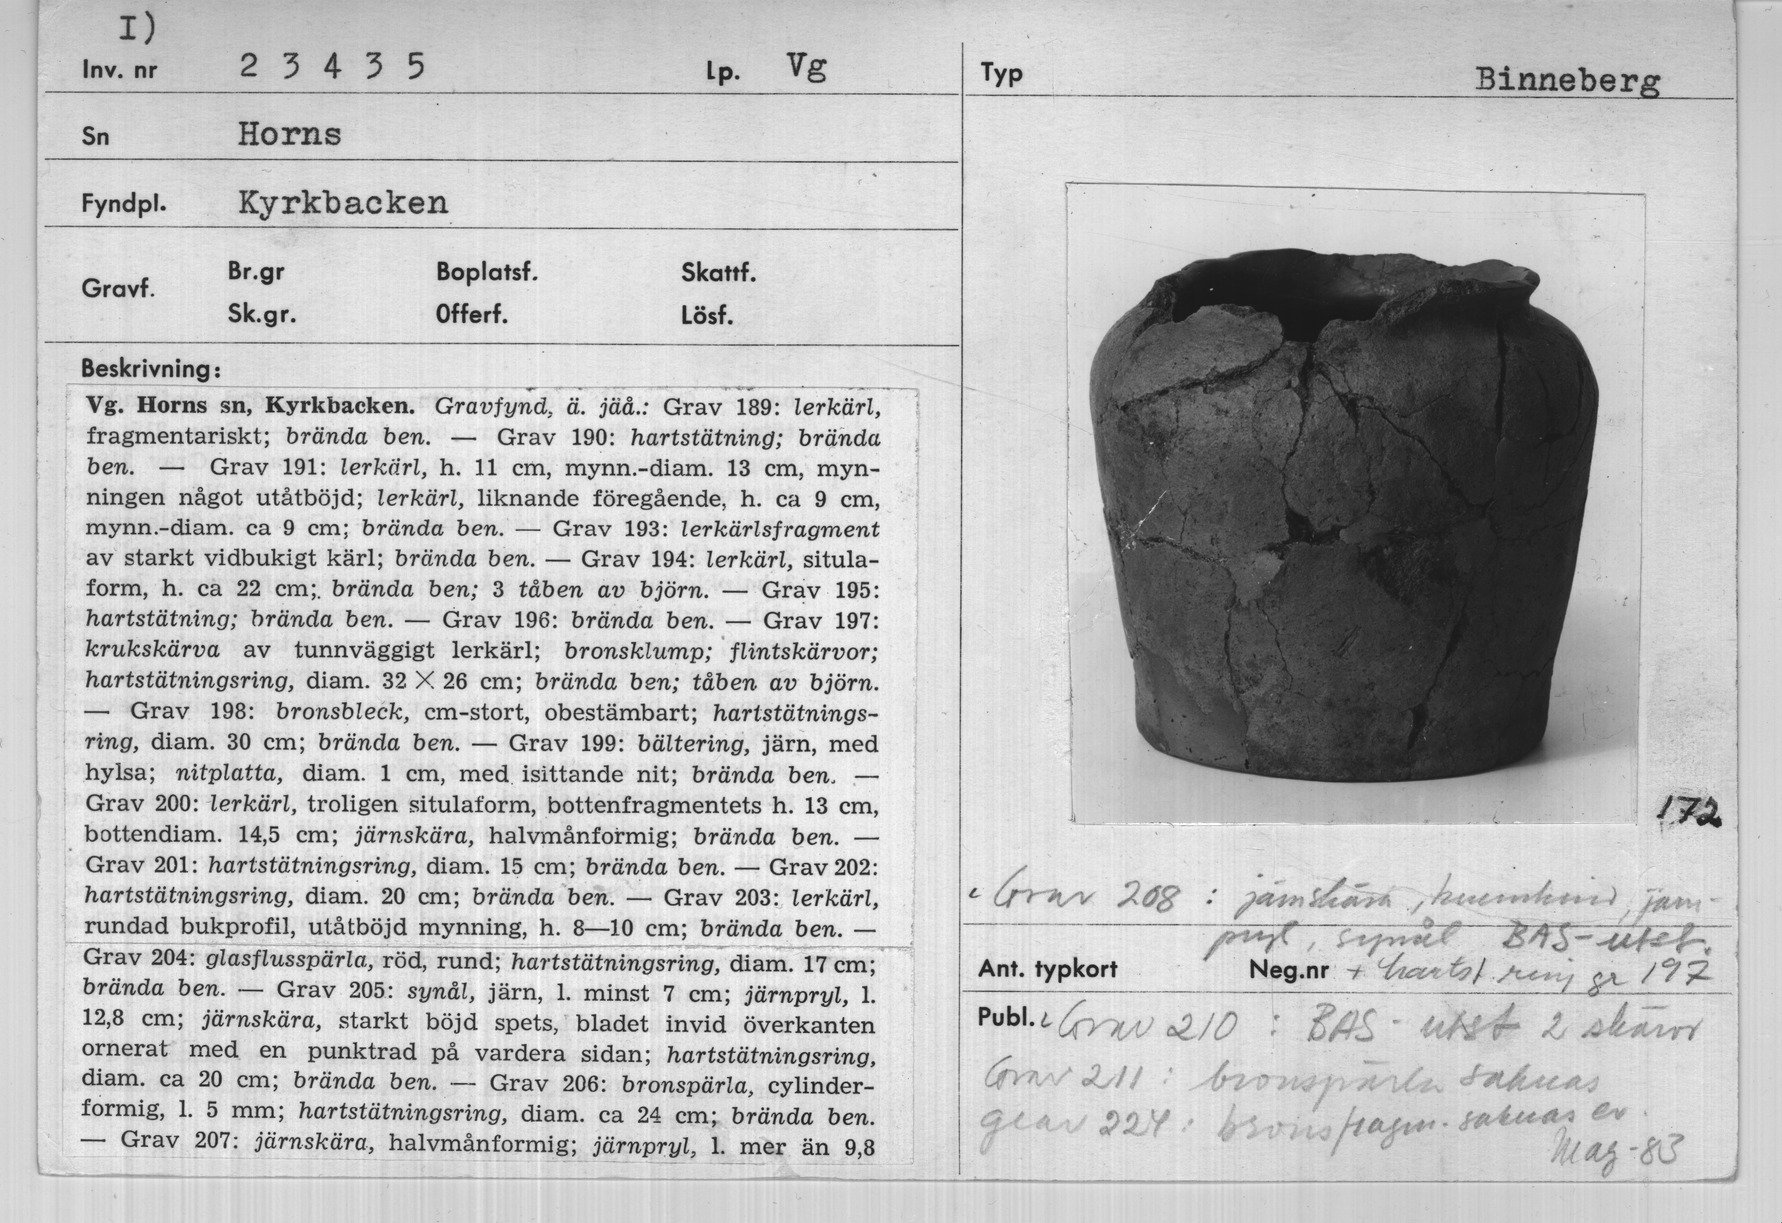 I)
Inv. nr 2 3 4 3 5 Lp. Vg
Sn Horns
Fyndpl. Kyrkbacken
Gravf. Br.gr Boplatsf. Skattf.
Sk.gr. Offerf. Lösf.
Beskrivning:
Vg. Horns sn, Kyrkbacken. Gravfynd, ä. jäå.: Grav 189: lerkärl,
fragmentariskt; brända ben. — Grav 190: hartstätning; brända
ben. — Grav 191: lerkärl, h. 11 cm, mynn.-diam. 13 cm, myn-
ningen något utåtböjd; lerkärl, liknande föregående, h. ca 9 cm,
mynn.-diam. ca 9 cm; brända ben. — Grav 193: lerkärlsfragment
av starkt vidbukigt kärl; brända ben. — Grav 194: lerkärl, situla-
form, h. ca 22 cm; brända ben; 3 tåben av björn. — Grav 195:
hartstätning; brända ben. — Grav 196: brända ben. — Grav 197:
krukskärva av tunnväggigt lerkärl; bronsklump; flintskärvor;
hartstätningsring, diam. 32 × 26 cm; brända ben; tåben av björn.
— Grav 198: bronsbleck, cm-stort, obestämbart; hartstätnings-
ring, diam. 30 cm; brända ben. — Grav 199: bältering, järn, med
hylsa; nitplatta, diam. 1 cm, med isittande nit; brända ben. —
Grav 200: lerkärl, troligen situlaform, bottenfragmentets h. 13 cm,
bottendiam. 14,5 cm; järnskära, halvmånformig; brända ben. —
Grav 201: hartstätningsring, diam. 15 cm; brända ben. — Grav 202:
hartstätningsring, diam. 20 cm; brända ben. — Grav 203: lerkärl,
rundad bukprofil, utåtböjd mynning, h. 8—10 cm; brända ben. —
Grav 204: glasflusspärla, röd, rund; hartstätningsring, diam. 17 cm;
brända ben. — Grav 205: synål, järn, l. minst 7 cm; järnpryl, l.
12,8 cm; järnskära, starkt böjd spets, bladet invid överkanten
ornerat med en punktrad på vardera sidan; hartstätningsring,
diam. ca 20 cm; brända ben. — Grav 206: bronspärla, cylinder-
formig, l. 5 mm; hartstätningsring, diam. ca 24 cm; brända ben.
— Grav 207: järnskära, halvmånformig; järnpryl, l. mer än 9,8
Typ Binneberg
172
Grav 208 : järnskära, järn-
pryl, synål BAS-utst.
Ant. typkort Neg.nr + hartst ring gr 197
Publ. Grav 210 : BAS-utst 2 skärvor
Grav 211 : bronspärla saknas
grav 224 : bronsfragm. saknas
Maj -83